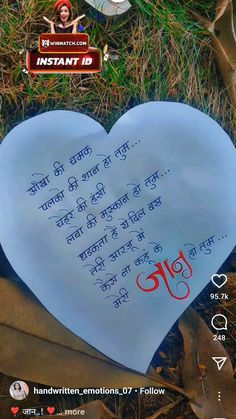 WINMATCH.COM
INSTANT ID
आँखो की चमक
पलकों की शान हो तुम...
चेहरे की हंसी
लबो की मुस्कान हो तुम...
धड़कता है ये दिल बस
तेरी आरज़ू मे
कैसे ना कहूं के
मेरी जान हो तुम...
95.7k
248
handwritten_emotions_07 • Follow
जान..! ... more